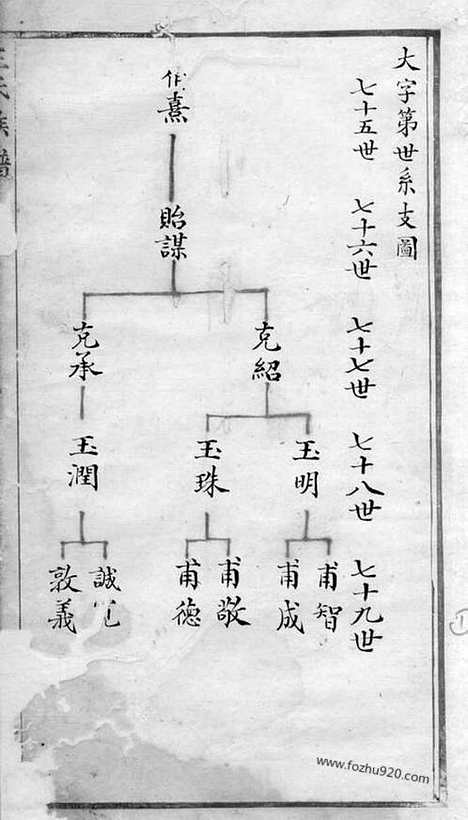 大字第世系支圖
七十五世
七十六世
七十七世
七十八世
七十九世
熹
貽謀
克紹
克承
玉明
玉珠
玉潤
甫智
甫成
甫敬
甫德
誠
敦義
氏族譜
www.fozhu920.com